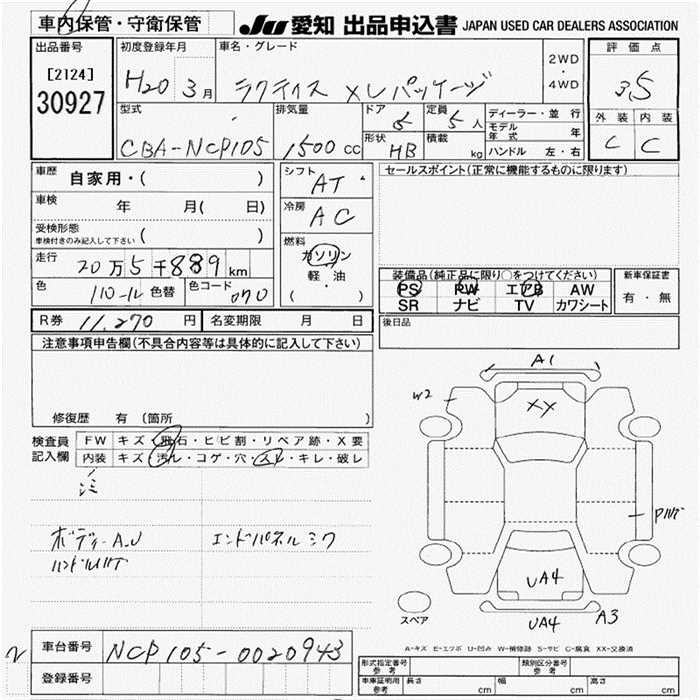 車内保管・守衛保管
JU 愛知 出品申込書 JAPAN USED CAR DEALERS ASSOCIATION
出品番号
[2124]
30927
初度登録年月
H20 3月
車名・グレード
ラクティス X Lパッケージ
2WD
・
4WD
評価点
3.5
外装 内装
C C
型式
CBA-NCP105
排気量
1500 CC
ドア
5
定員
5人
形状
HB
積載
kg
ディーラー・並行
モデル年式 年
ハンドル 左・右
車歴 自家用・( )
車検 年 月( 日)
受検形態
車検付きのみ記入して下さい ( )
走行 20万5千889km
色 パール 色替 色コード 070
シフト
AT
冷房
AC
燃料
ガソリン
軽・油
( )
セールスポイント(正常に機能するものに限ります)
装備品(純正品に限り○をつけてください)
PS PW エアB AW
SR ナビ TV カワシート
新車保証書
有・無
R券 11,270 円 名変期限 月 日
後日品
注意事項申告欄(不具合内容等は具体的に記入して下さい)
修復歴 有 (箇所 )
検査員
記入欄
FW キズ・飛石・ヒビ割・リペア跡・X要
内装 キズ・汚レ・コゲ・穴・スレ・キレ・破レ
注
ボディーA.U エンドパネルミク
A1
W2
XX
UA4
UA4
A3
スペア
A-キズ E-エクボ U-凹み W-補修跡 S-サビ C-腐食 XX-交換済
車台番号 NCP105-0020943
登録番号
形式指定番号
参考
類別区分番号
参考
車庫証明用
参考
長さ cm 幅 cm 高さ cm